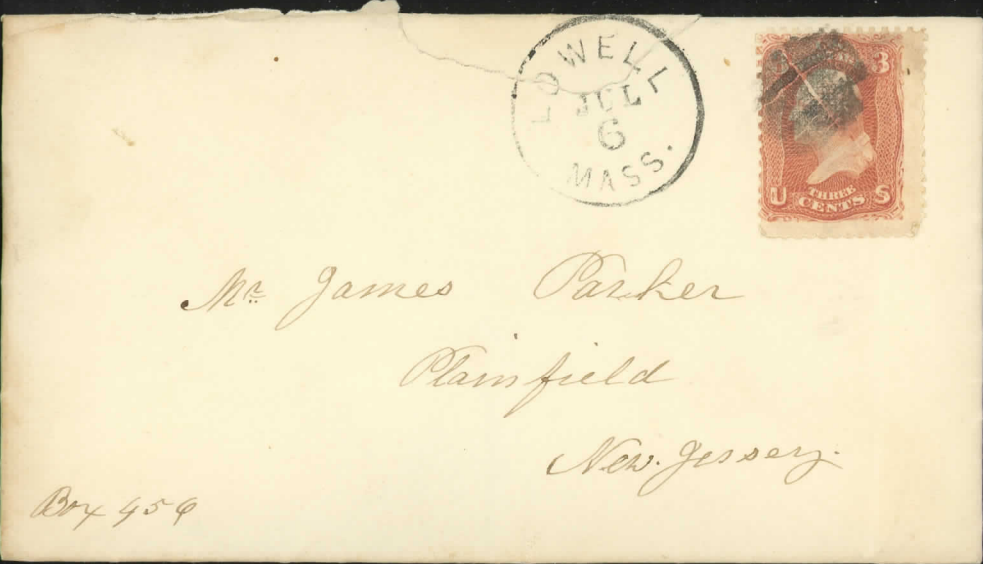 LOWELL
JUL
6
MASS.
3
U THREE CENTS S
Mr. James Parker
Plainfield
New. Jersey.
Box 456